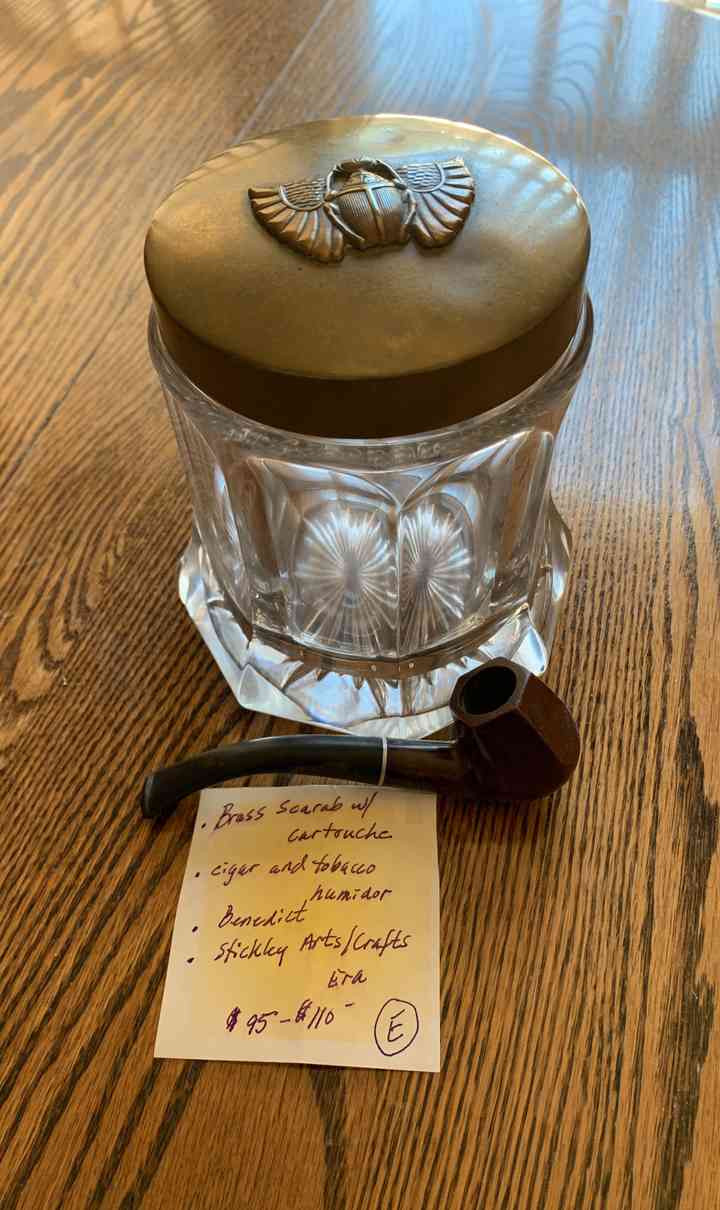 • Brass Scarab w/
cartouche
• cigar and tobacco
humidor
• Benedict
• Stickley Arts/Crafts
Era
$95-$110-
E